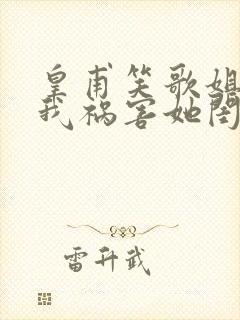 皇甫笑歌姐
我祸害她闺
雷升武